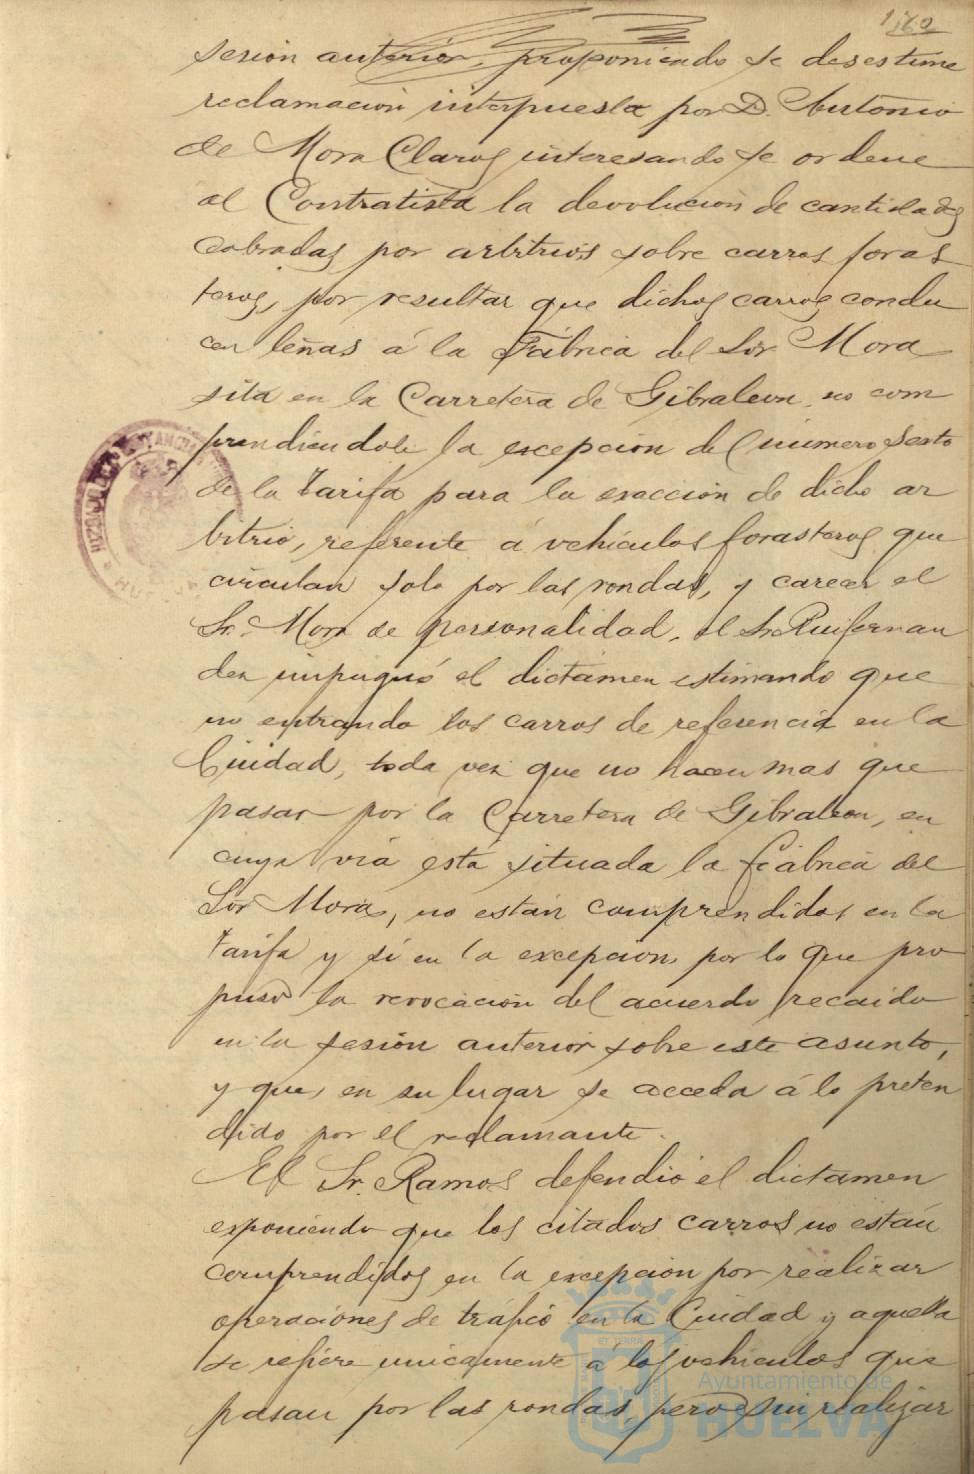 162
sesión anterior, proponiendo se desestime
reclamación interpuesta por D. Antonio
de Mora Claros interesando se ordene
al Contratista la devolución de cantidades
cobradas por arbitrios sobre carros foras
teros, por resultar que dichos carros condu
cen leñas á la Fábrica del Sór Mora
sita en la Carretera de Gibraleon, no com
prendiendole la excepcion del número sesto
de la tarifa para la exacción de dicho ar
bitrio, referente á vehículos forasteros que
circulan solo por las rondas, y carecer el
Sr. Mora de personalidad. el Sr. Ruifernan
dez impugnó el dictamen estimando que
no entrando los carros de referencia en la
Ciudad, toda vez que no hacen mas que
pasar por la Carretera de Gibraleon, en
cuya vía está situada la fábrica del
Sór Mora, no están comprendidos en la
tarifa y sí en la excepcion, por lo que pro
puso la revocación del acuerdo recaido
en la sesión anterior sobre este asunto,
y que, en su lugar se acceda á lo preten
dido por el reclamante.
El Sr. Ramos defendió el dictamen
exponiendo que los citados carros no están
comprendidos en la excepcion por realizar
operaciones de tráfico en la Ciudad y aquella
se refiere unicamente á los vehiculos que
pasan por las rondas pero sin realizar
Ayuntamiento de
HUELVA